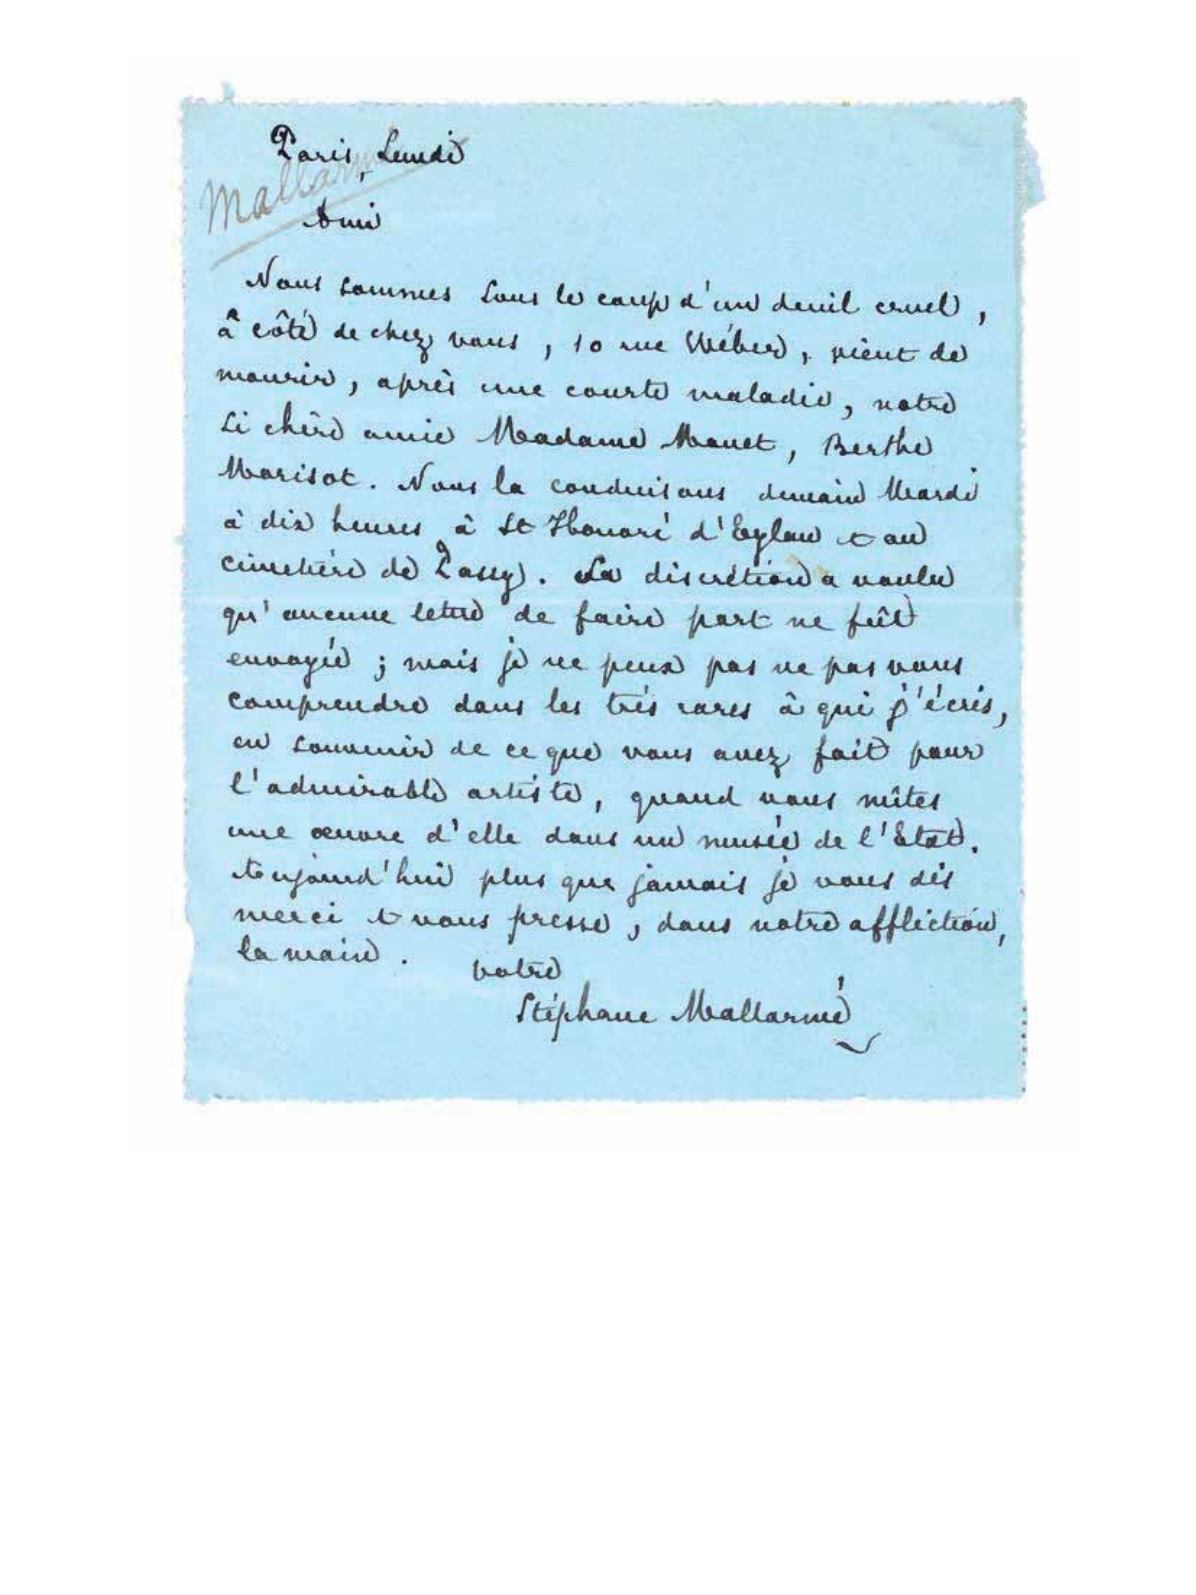 Paris, Lundi
Mallarmé
Ami
Nous sommes sous le coup d'un deuil cruel,
à côté de chez vous, 10 rue Wéber, vient de
mourir, après une courte maladie, notre
si chère amie Madame Manet, Berthe
Morisot. Nous la conduisons demain Mardi
à dix heures à St Honoré d'Eylau et au
cimetière de Passy. La discrétion a voulu
qu'aucune lettre de faire part ne fût
envoyée ; mais je ne peux pas ne pas vous
comprendre dans les très rares à qui j'écris,
en souvenir de ce que vous avez fait pour
l'admirable artiste, quand vous mîtes
une œuvre d'elle dans un musée de l'Etat.
Aujourd'hui plus que jamais je vous dis
merci et vous presse, dans notre affliction,
la main.
votre
Stéphane Mallarmé